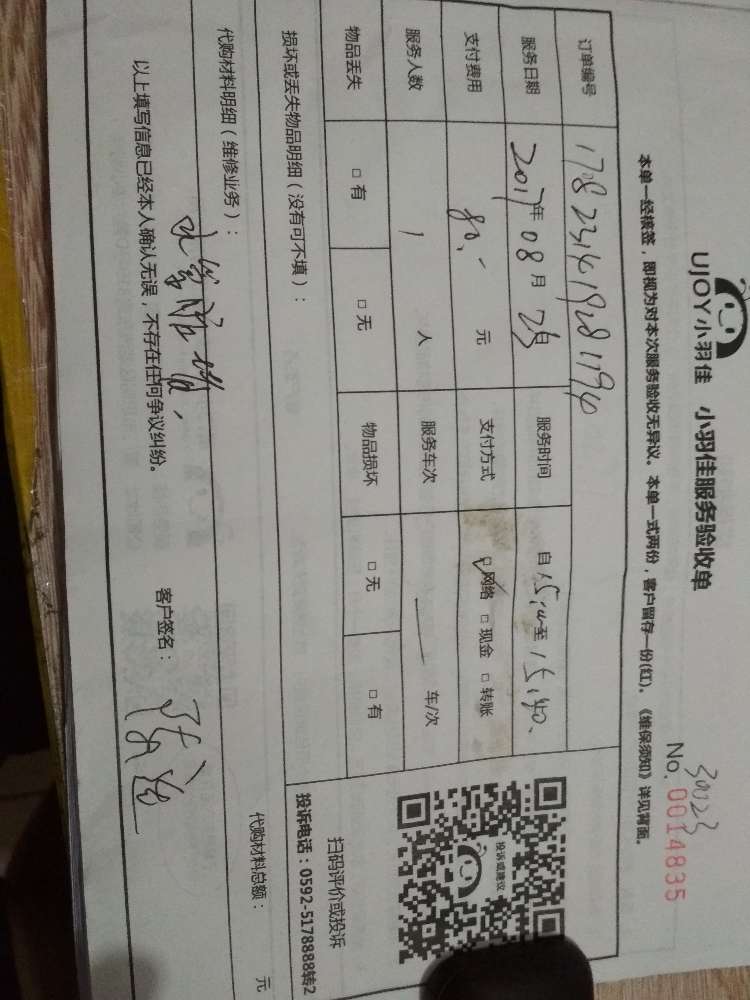 UJOY小羽佳 小羽佳服务验收单
30023
No. 0014835
本单一经核签，即视为对本次服务验收无异议。本单一式两份，客户留存一份(红)。《维保须知》详见背面。
订单编号
服务日期 2017年 08 月 日 服务时间 自 至 15:40
支付费用 80.- 元 支付方式 ☑网络 □现金 □转账
服务人数 1 人 服务车次 车/次
物品丢失 □有 □无 物品损坏 □无 □有
投诉或建议
扫码评价或投诉
投诉电话：0592-5178888转2
损坏或丢失物品明细（没有可不填）：
代购材料明细（维修业务）： 代购材料总额： 元
以上填写信息已经本人确认无误，不存在任何争议纠纷。 客户签名：